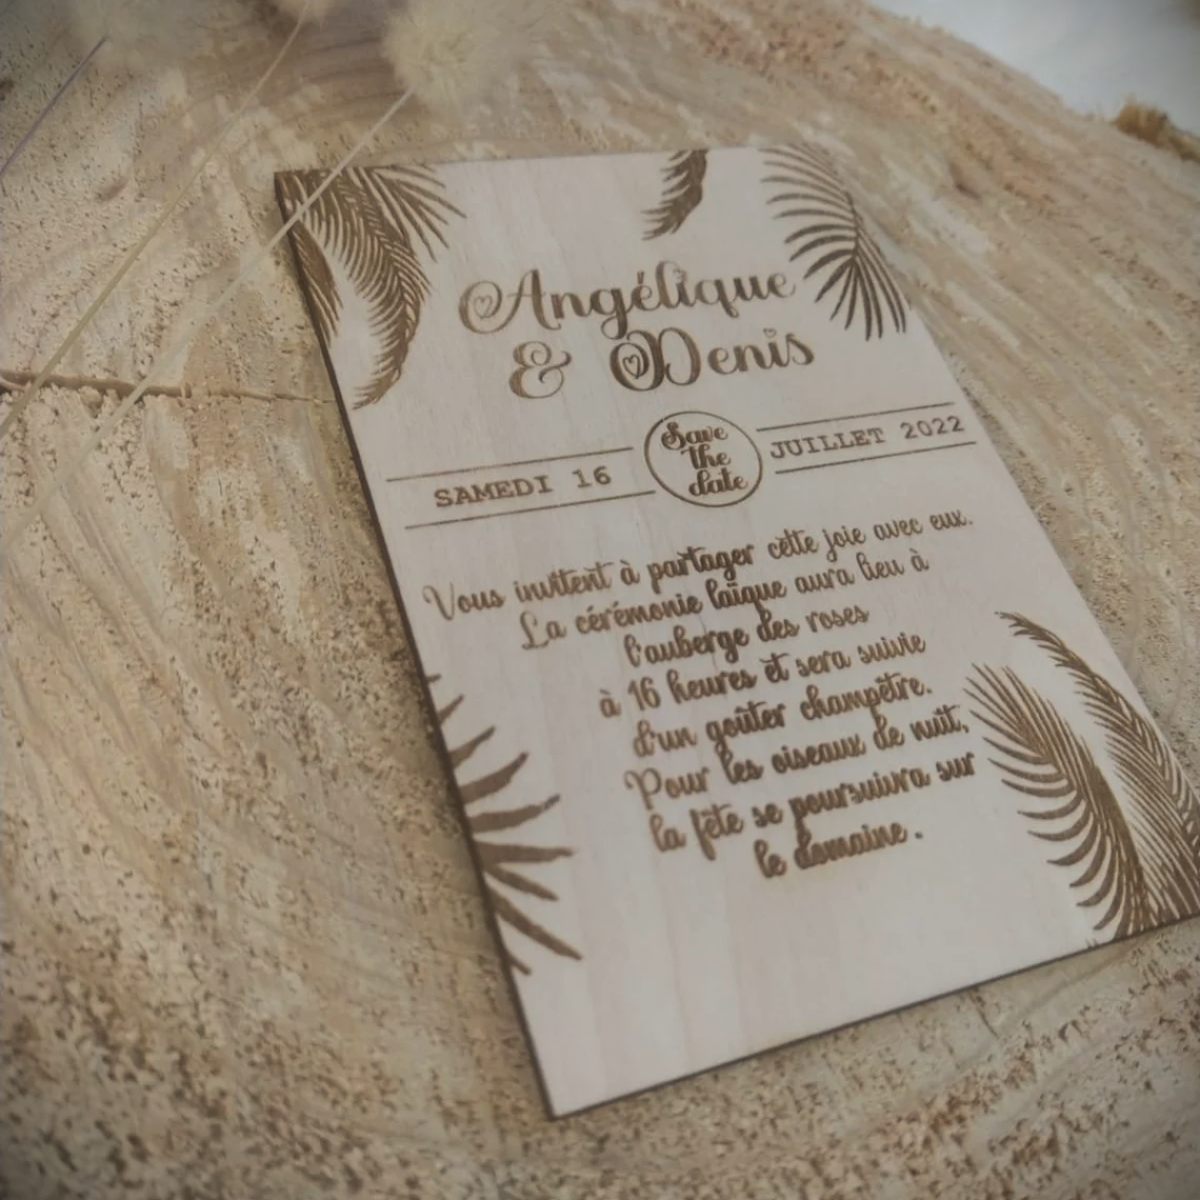 Angélique
& Denis
SAMEDI 16
Save
the
date
JUILLET 2022
Vous invitent à partager cette joie avec eux.
La cérémonie laïque aura lieu à
l'auberge des roses
à 16 heures et sera suivie
d'un goûter champêtre.
Pour les oiseaux de nuit,
la fête se poursuivra sur
le domaine.